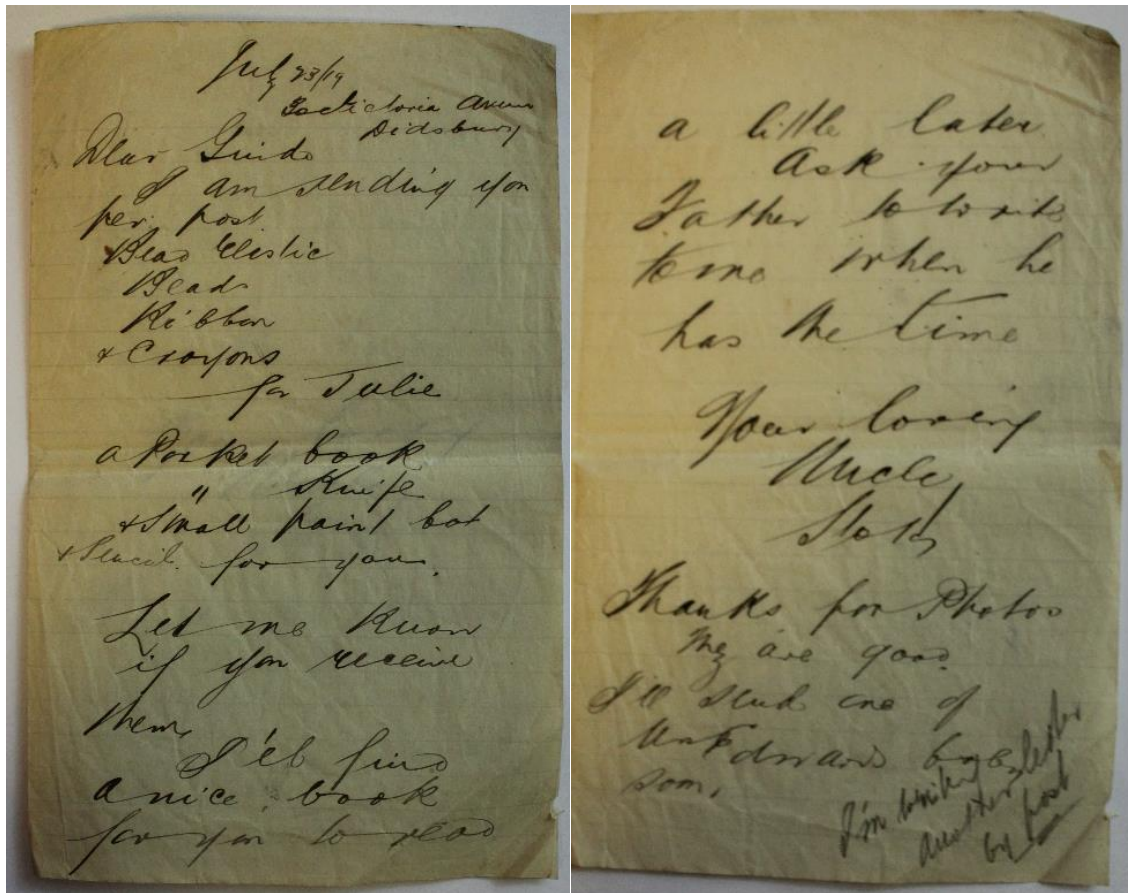 July 23/19
Victoria Avenue
Didsbury
Dear Guido
I am sending you
per post
Bead Elestic
Beads
Ribbon
& Crayons
for Julie
a Pocket book
" Knife
& Small paint box
& Pencil for you.
Let me know
if you receive
them,
I'll find
a nice book
for you to read
a little later
Ask your
Father to write
to me when he
has the time
Your loving
Uncle
Thanks for Photos
They are good.
I'll send one of
soon,
I'm writing
another letter
by post